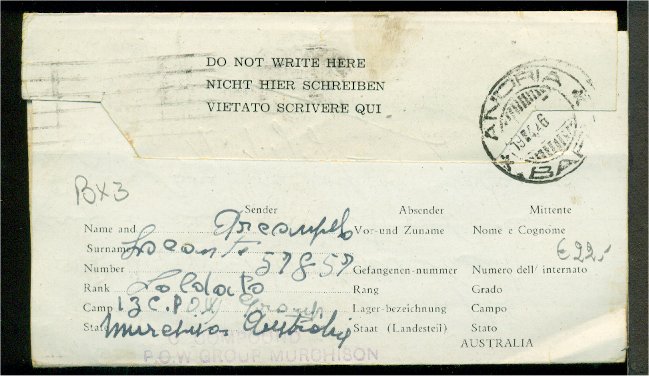 DO NOT WRITE HERE
NICHT HIER SCHREIBEN
VIETATO SCRIVERE QUI
ANDRIA
BX3
Sender Absender Mittente
Name and Vor-und Zuname Nome e Cognome
Surname
€ 22,-
Number 57857 Gefangenen-nummer Numero dell/ internato
Rank Soldato Rang Grado
Camp 13 C.P.O.W. Group Lager-bezeichnung Campo
State Murchison Australia Staat (Landesteil) Stato
AUSTRALIA
P.O.W GROUP MURCHISON